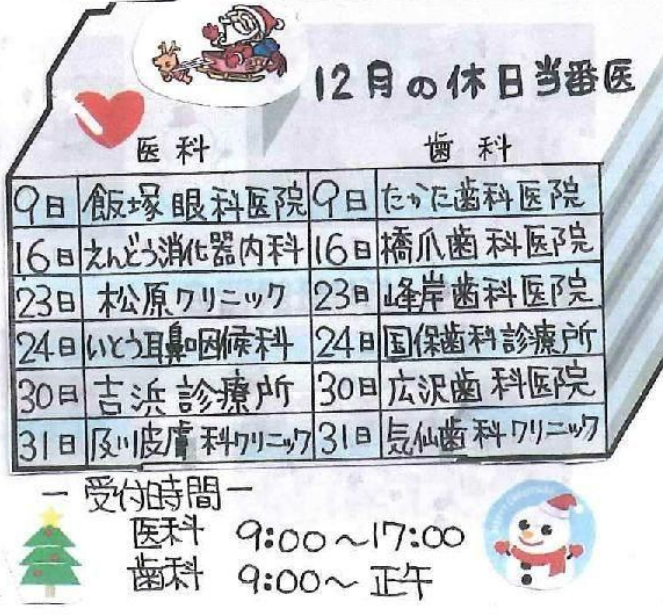 12月の休日当番医
医科 歯科
9日 飯塚眼科医院 9日 たかた歯科医院
16日 えんどう消化器内科 16日 橋爪歯科医院
23日 松原クリニック 23日 峰岸歯科医院
24日 いとう耳鼻咽候科 24日 国保歯科診療所
30日 吉浜診療所 30日 広沢歯科医院
31日 及川皮膚科クリニック 31日 気仙歯科クリニック
ー受付時間ー
医科 9:00〜17:00
歯科 9:00〜正午